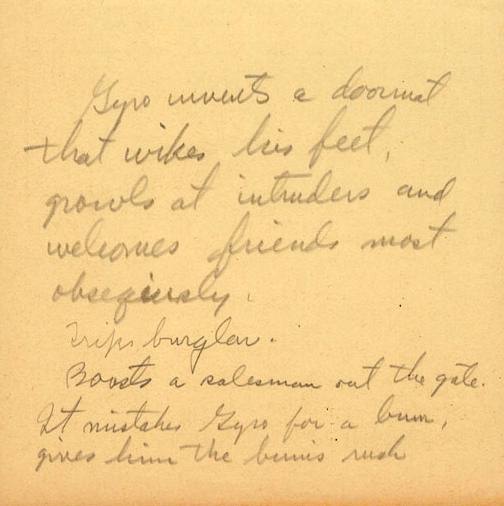 Gyro invents a doormat
that wikes his feet,
growls at intruders and
welcomes friends most
obseqiusly.
Trips burglar.
Boosts a salesman out the gate.
It mistakes Gyro for a bum,
gives him the bum's rush